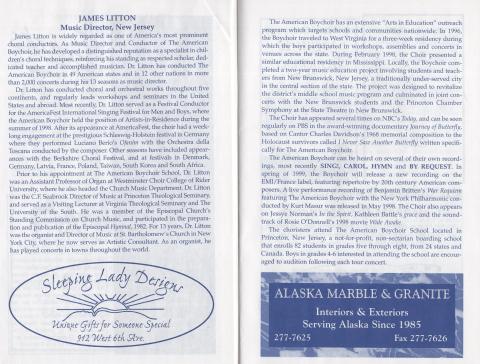 JAMES LITTON
Music Director, New Jersey
James Litton is widely regarded as one of America's most prominent
choral conductors. As Music Director and Conductor of The American
Boychoir, he has developed a distinguished reputation as a specialist in chil-
dren's choral techniques, reinforcing his standing as respected scholar, dedi-
cated teacher and accomplished musician. Dr. Litton has conducted The
American Boychoir in 49 American states and in 12 other nations in more
than 2,000 concerts during his 13 seasons as music director.
Dr. Litton has conducted choral and orchestral works throughout five
continents, and regularly leads workshops and seminars in the United
States and abroad. Most recently, Dr. Litton served as a Festival Conductor
for the AmericaFest International Singing Festival for Men and Boys, where
the American Boychoir held the position of Artists-in-Residence during the
summer of 1998. After its appearance at AmericaFest, the choir had a week-
long engagement at the prestigious Schleswig-Holstein festival in Germany
where they performed Luciano Berio's Ofanim with the Orchestra della
Toscana conducted by the composer. Other seasons have included appear-
ances with the Berkshire Choral Festival, and at festivals in Denmark,
Germany, Latvia, France, Poland, Taiwan, South Korea and South Africa.
Prior to his appointment at The American Boychoir School, Dr. Litton
was an Assistant Professor of Organ at Westminster Choir College of Rider
University, where he also headed the Church Music Department. Dr. Litton
was the C.F. Seabrook Director of Music at Princeton Theological Seminary,
and served as a Visiting Lecturer at Virginia Theological Seminary and The
University of the South. He was a member of the Episcopal Church's
Standing Commission on Church Music, and participated in the prepara-
tion and publication of the Episcopal Hymnal, 1982. For 13 years, Dr. Litton
was the organist and Director of Music at St. Bartholomew's Church in New
York City, where he now serves as Artistic Consultant. As an organist, he
has played concerts in towns throughout the world.
Sleeping Lady Designs
Unique Gifts for Someone Special
912 West 6th Ave.
The American Boychoir has an extensive "Arts in Education" outreach
program which targets schools and communities nationwide. In 1996,
the Boychoir traveled to West Virginia for a three-week residency during
which the boys participated in workshops, assemblies and concerts in
venues across the state. During February 1998, the Choir presented a
similar educational residency in Mississippi. Locally, the Boychoir com-
pleted a two-year music education project involving students and teach-
ers from New Brunswick, New Jersey, a traditionally under-served city
in the central section of the state. The project was designed to revitalize
the district's middle school music program and culminated in joint con-
certs with the New Brunswick students and the Princeton Chamber
Symphony at the State Theatre in New Brunswick.
The Choir has appeared several times on NBC's Today, and can be seen
regularly on PBS in the award-winning documentary Journey of Butterfly,
based on Cantor Charles Davidson's 1968 memorial composition to the
Holocaust survivors called I Never Saw Another Butterfly written specifi-
cally for The American Boychoir.
The American Boychoir can be heard on several of their own record-
ings, most recently SING!, CAROL, HYMN and BY REQUEST. In
spring of 1999, the Boychoir will release a new recording on the
EMI/France label, featuring repertoire by 20th century American com-
posers. A live performance recording of Benjamin Britten's War Requiem
featuring The American Boychoir with the New York Philharmonic con-
ducted by Kurt Masur was released in May 1998. The Choir also appears
on Jessye Norman's In the Spirit, Kathleen Battle's grace and the sound-
track of Rosie O'Donnell's 1998 movie Wide Awake.
The choristers attend The American Boychoir School located in
Princeton, New Jersey, a not-for-profit, non-sectarian boarding school
that enrolls 82 students in grades five through eight, from 24 states and
Canada. Boys in grades 4-6 interested in attending the school are encour-
aged to audition following each tour concert.
ALASKA MARBLE & GRANITE
Interiors & Exteriors
Serving Alaska Since 1985
277-7625 Fax 277-7626